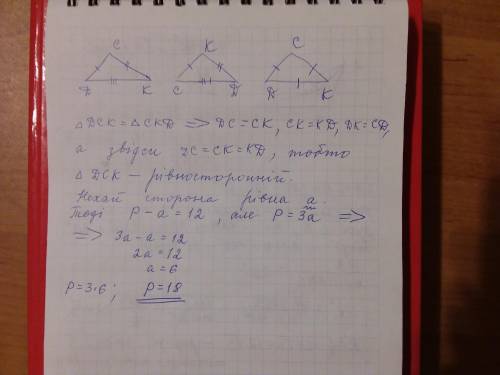 C K C
D K C D D K
△DCK = △CKD => DC = CK, CK = KD, DK = CD,
а звідси DC = CK = KD, тобто
△DCK – рівносторонній.
Нехай сторона рівна a.
Тоді P – a = 12, але P = 3a =>
=> 3a – a = 12
2a = 12
a = 6
P = 3·6; P = 18